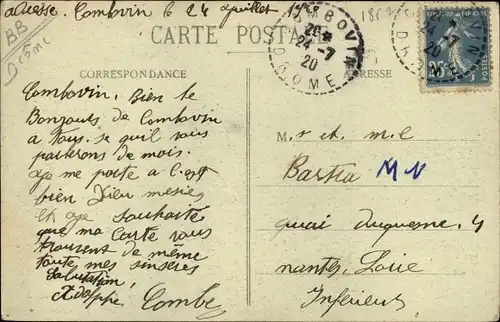 adresse. Combovin le 24 Juillet
BB
Drôme
CARTE POSTALE
COMBOVIN
20*
24-7
20
DROME
25c
POSTES
CORRESPONDANCE
ADRESSE
Combovin, Bien le
Bonjours de Combovin
a Tous. se quil vous
parterons de mois.
je me porte a l'est
bien Dieu mersie
et je souhaite
que ma Carte vous
trouvent de même
toutes mes sinseres
Salutation,
Adolphe Combe
M.r et M.e
Bartra MN
quai duquesne, 4
nantes, Loire
Inférieure